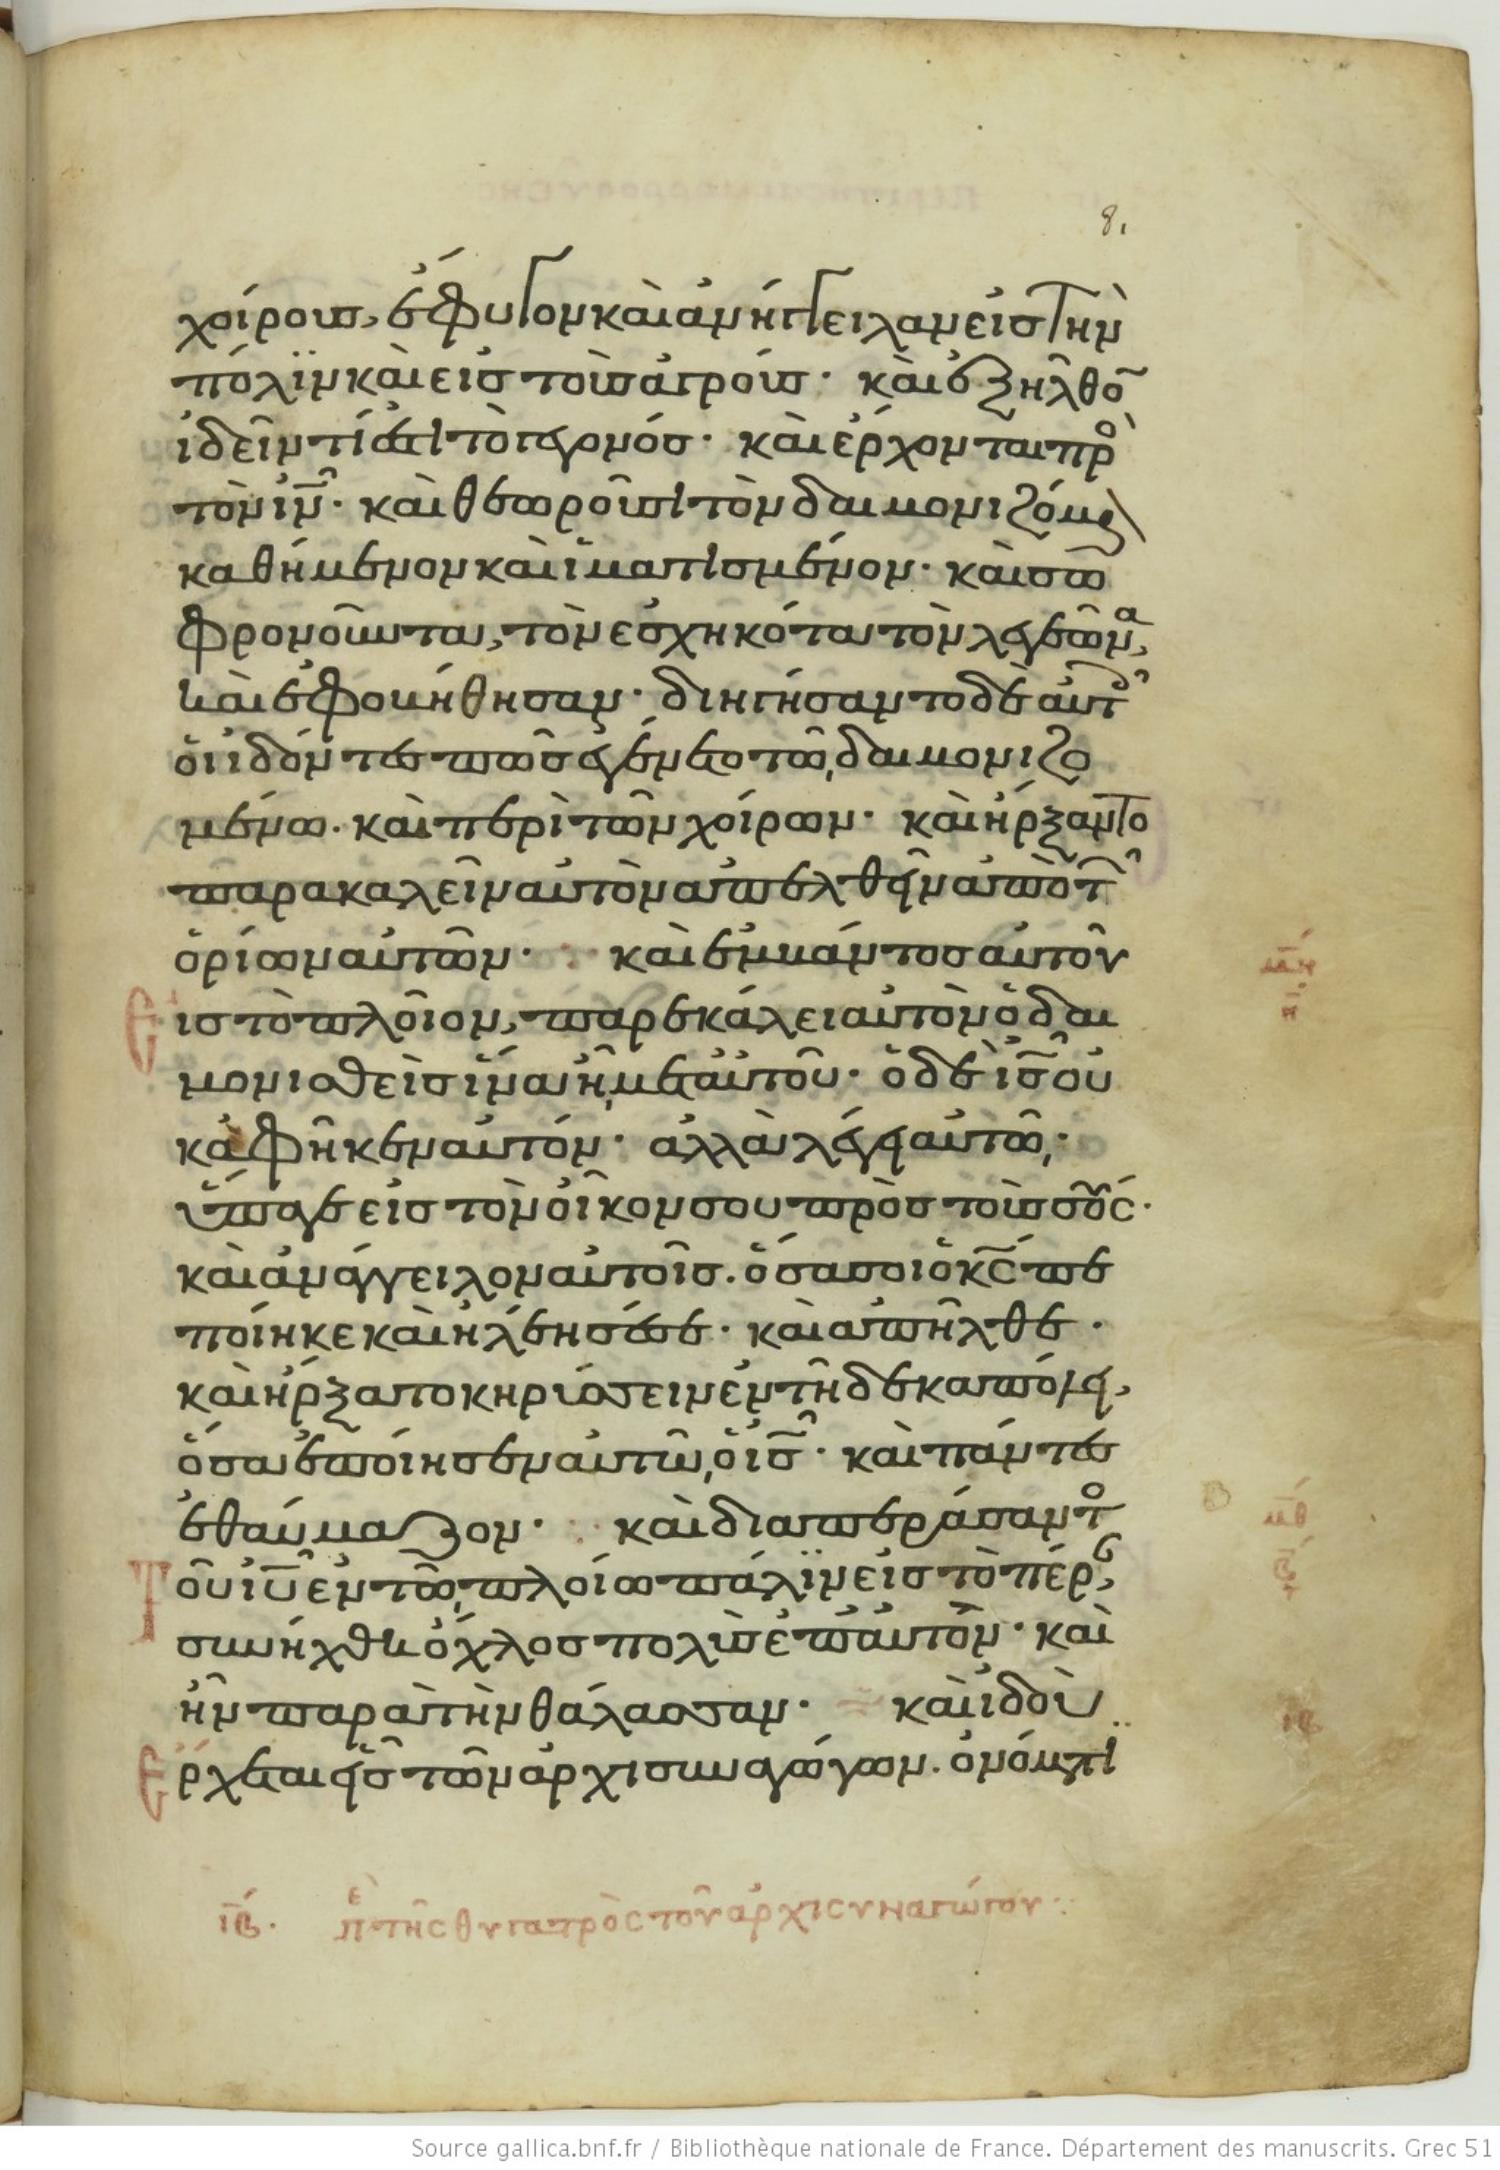 81
χοίρους, ἔφυγον καὶ ἀνήγγειλαν εἰς τὴν
πόλϊν καὶ εἰς τοὺς ἀγρούς· καὶ ἐξῆλθο̅
ἰδεῖν τί ἐστι τὸ γεγονός· καὶ ἔρχονται πρὸ
τὸν ι̅ν̅· καὶ θεωροῦσι τὸν δαιμονιζόμε
καθήμενον καὶ ἱματισμένον· καὶ σω
φρονοῦντα, τὸν ἐσχηκότα τὸν λεγεῶνα,
καὶ ἐφοβήθησαν· διηγήσαντο δὲ αὐτ
οἱ ἰδόντες πῶς ἐγένετο τῶ δαιμονιζο
μένω· καὶ περὶ τῶν χοίρων· καὶ ἤρξαντο
παρακαλεῖν αὐτὸν ἀπελθεῖν ἀπὸ τ
ὁρίων αὐτῶν· καὶ ἐμβάντος αὐτοῦ
Ει
ισ τὸ πλοῖον, παρεκάλει αὐτὸν ὁ δαι
μονισθεὶς ἵνα ἦ μετ αὐτοῦ· ὁ δὲ ι̅ς̅ οὐ
κ ἀφῆκεν αὐτόν· ἀλλὰ λέγει αὐτῶ·
ὕπαγε εἰς τὸν οἶκον σου πρὸς τοὺς σούς·
καὶ ἀνάγγειλον αὐτοῖς. ὅσα σοι ὁ κ̅ς̅ πε
ποίηκε καὶ ἠλέησέ σε· καὶ ἀπῆλθε·
καὶ ἤρξατο κηρύσσειν ἐν τῆ δεκαπόλει,
ὅσα ἐποίησεν αὐτῶ ὁ ι̅ς̅· καὶ πάντες
ἐθαύμαζον· καὶ διαπεράσαντο
Τοῦ ι̅υ̅ ἐν τῶ πλοίω πάλϊν εἰς τὸ πέρ,
συνήχθη ὄχλος πολὺς ἐπ αὐτὸν· καὶ
ἦν παρὰ τὴν θάλασσαν· καὶ ἰδοὺ
Ἔρχεται εἷς τῶν ἀρχισυναγώγων. ὀνόματι
μη
μθ
ιβ
ιβ. πε τῆς θυγατρὸς τοῦ ἀρχισυναγώγου:
Source gallica.bnf.fr / Bibliothèque nationale de France. Département des manuscrits. Grec 51